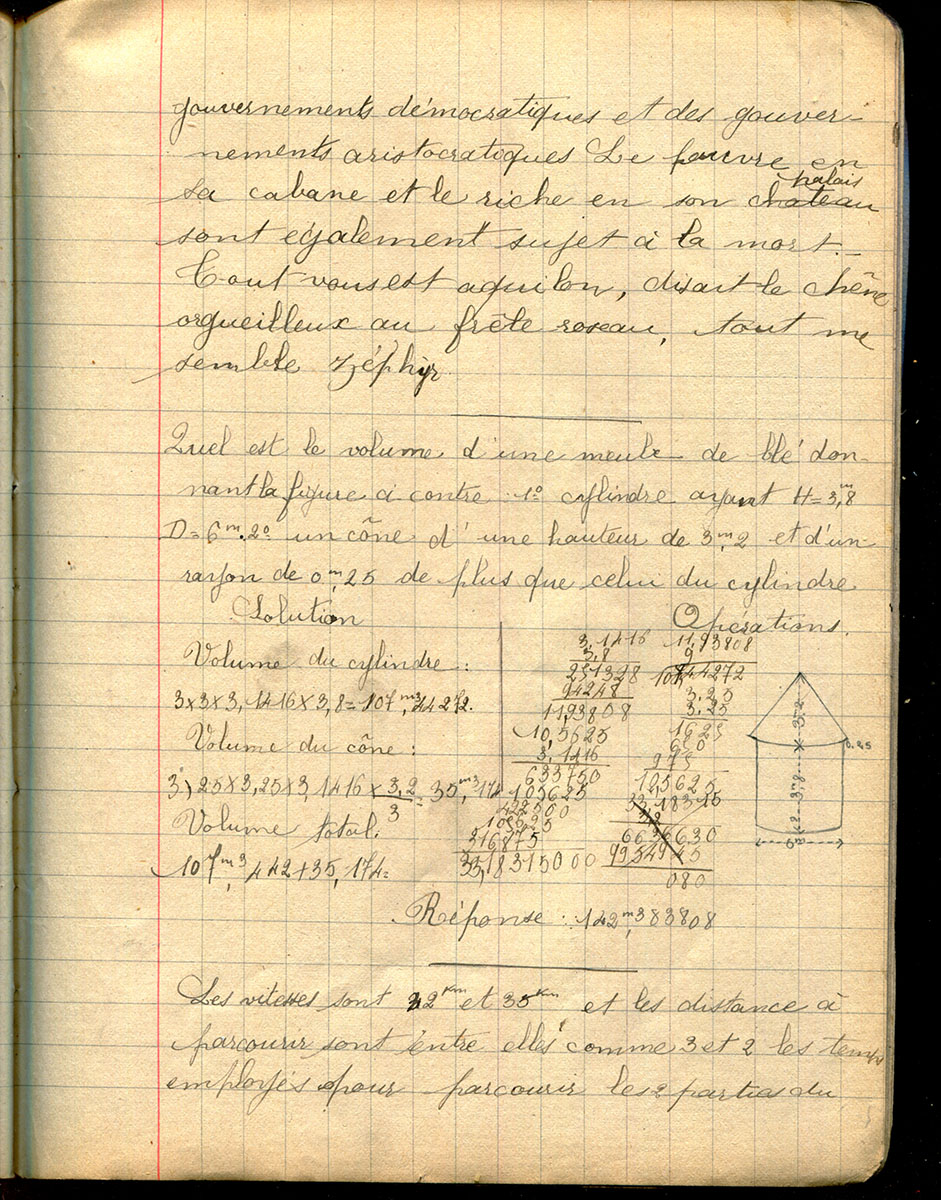 gouvernements démocratiques et des gouver-
nements aristocratiques Le pauvre en
sa cabane et le riche en son chateau palais
sont également sujet à la mort.
Tout vous est aquilon, disait le chêne
orgueilleux au frêle roseau, tout me
semble zéphyr
Quel est le volume d'une meule de blé don-
nant la figure ci contre 1º cylindre ayant H=3,m8
D=6m.2º un cône d'une hauteur de 3m,2 et d'un
rayon de 0,m25 de plus que celui du cylindre
Solution
Opérations.
Volume du cylindre :
3x3x3,1416x3,8=107,m344272.
Volume du cône :
3,25x3,25x3,1416x3,2 = 35,m3174
3
Volume total.
107,m3442+35,174=
3,1416
3,8
251328
94248
11,93808
10,5625
3,1416
633750
105625
422500
105625
316875
33,18315000
11,93808
9
107,44272
3,25
3.25
1625
650
975
105625
33,18315
3,2
6636630
9954945
080
3,2
0.25
3,8
Réponse : 142,m383808
Les vitesses sont 22Km et 35Km et les distance à
parcourir sont entre elles comme 3 et 2 les temps
employés pour parcourir les 2 parties du